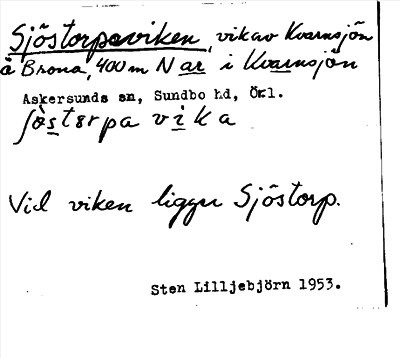 Sjöstorpsviken, vik av Kvarnsjön
å Brona, 400 m N ar i Kvarnsjön
Askersunds sn, Sundbo hd, Ökl.
vika
Vid viken ligger Sjöstorp.
Sten Lilljebjörn 1953.